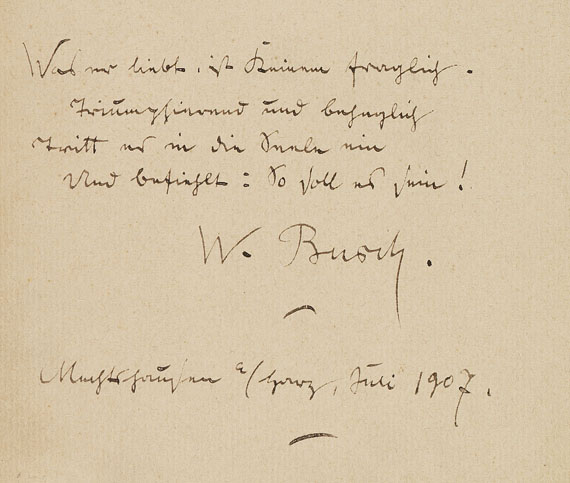 Was er liebt, ist Keinem fraglich.
Triumphierend und behaglich
Tritt es in die Seele ein
Und befiehlt: So soll es sein!
W. Busch.
Mechtshausen a/Harz, Juli 1907.